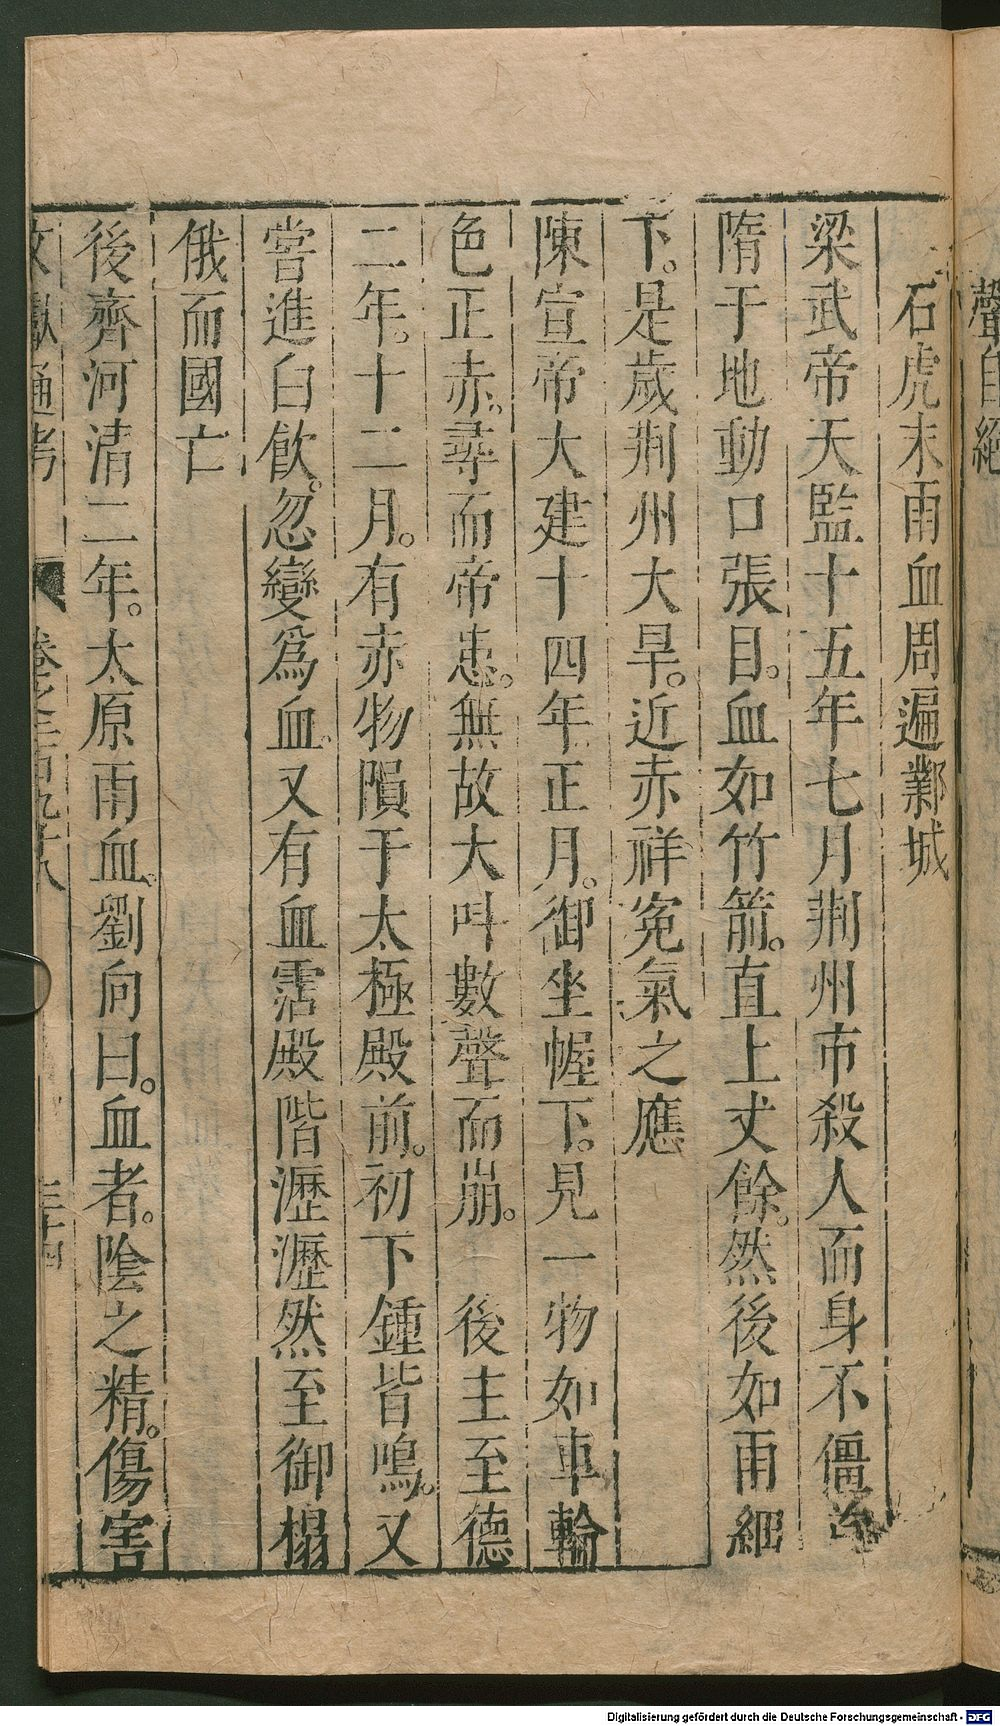 聲自絕
石虎末雨血周遍鄴城
梁武帝天監十五年七月荆州市殺人而身不僵首
隋于地動口張目。血如竹箭。直上丈餘。然後如雨細
下。是歲荆州大旱。近赤祥寃氣之應
陳宣帝大建十四年正月。御坐幄下。見一物如車輪
色正赤。尋而帝患。無故大叫數聲而崩。 後主至德
二年。十二月。有赤物隕于太極殿前。初下鍾皆鳴。又
嘗進白飲。忽變爲血。又有血霑殿階瀝瀝然至御榻
俄而國亡
後齊河清二年。太原雨血。劉向曰。血者。陰之精。傷害
文獻通考 卷之三百九十八 三十四
Digitalisierung gefördert durch die Deutsche Forschungsgemeinschaft - DFG